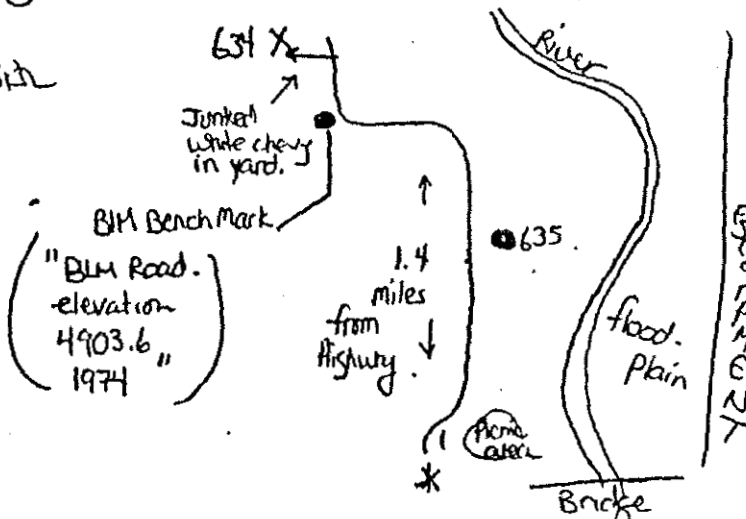 634 X
River
Junked
white chevy
in yard.
BLM BenchMark
635.
"BLM Road.
elevation
4903.6
1974"
1.4
miles
from
Highway.
flood.
Plain
Picnic
area
Bridge